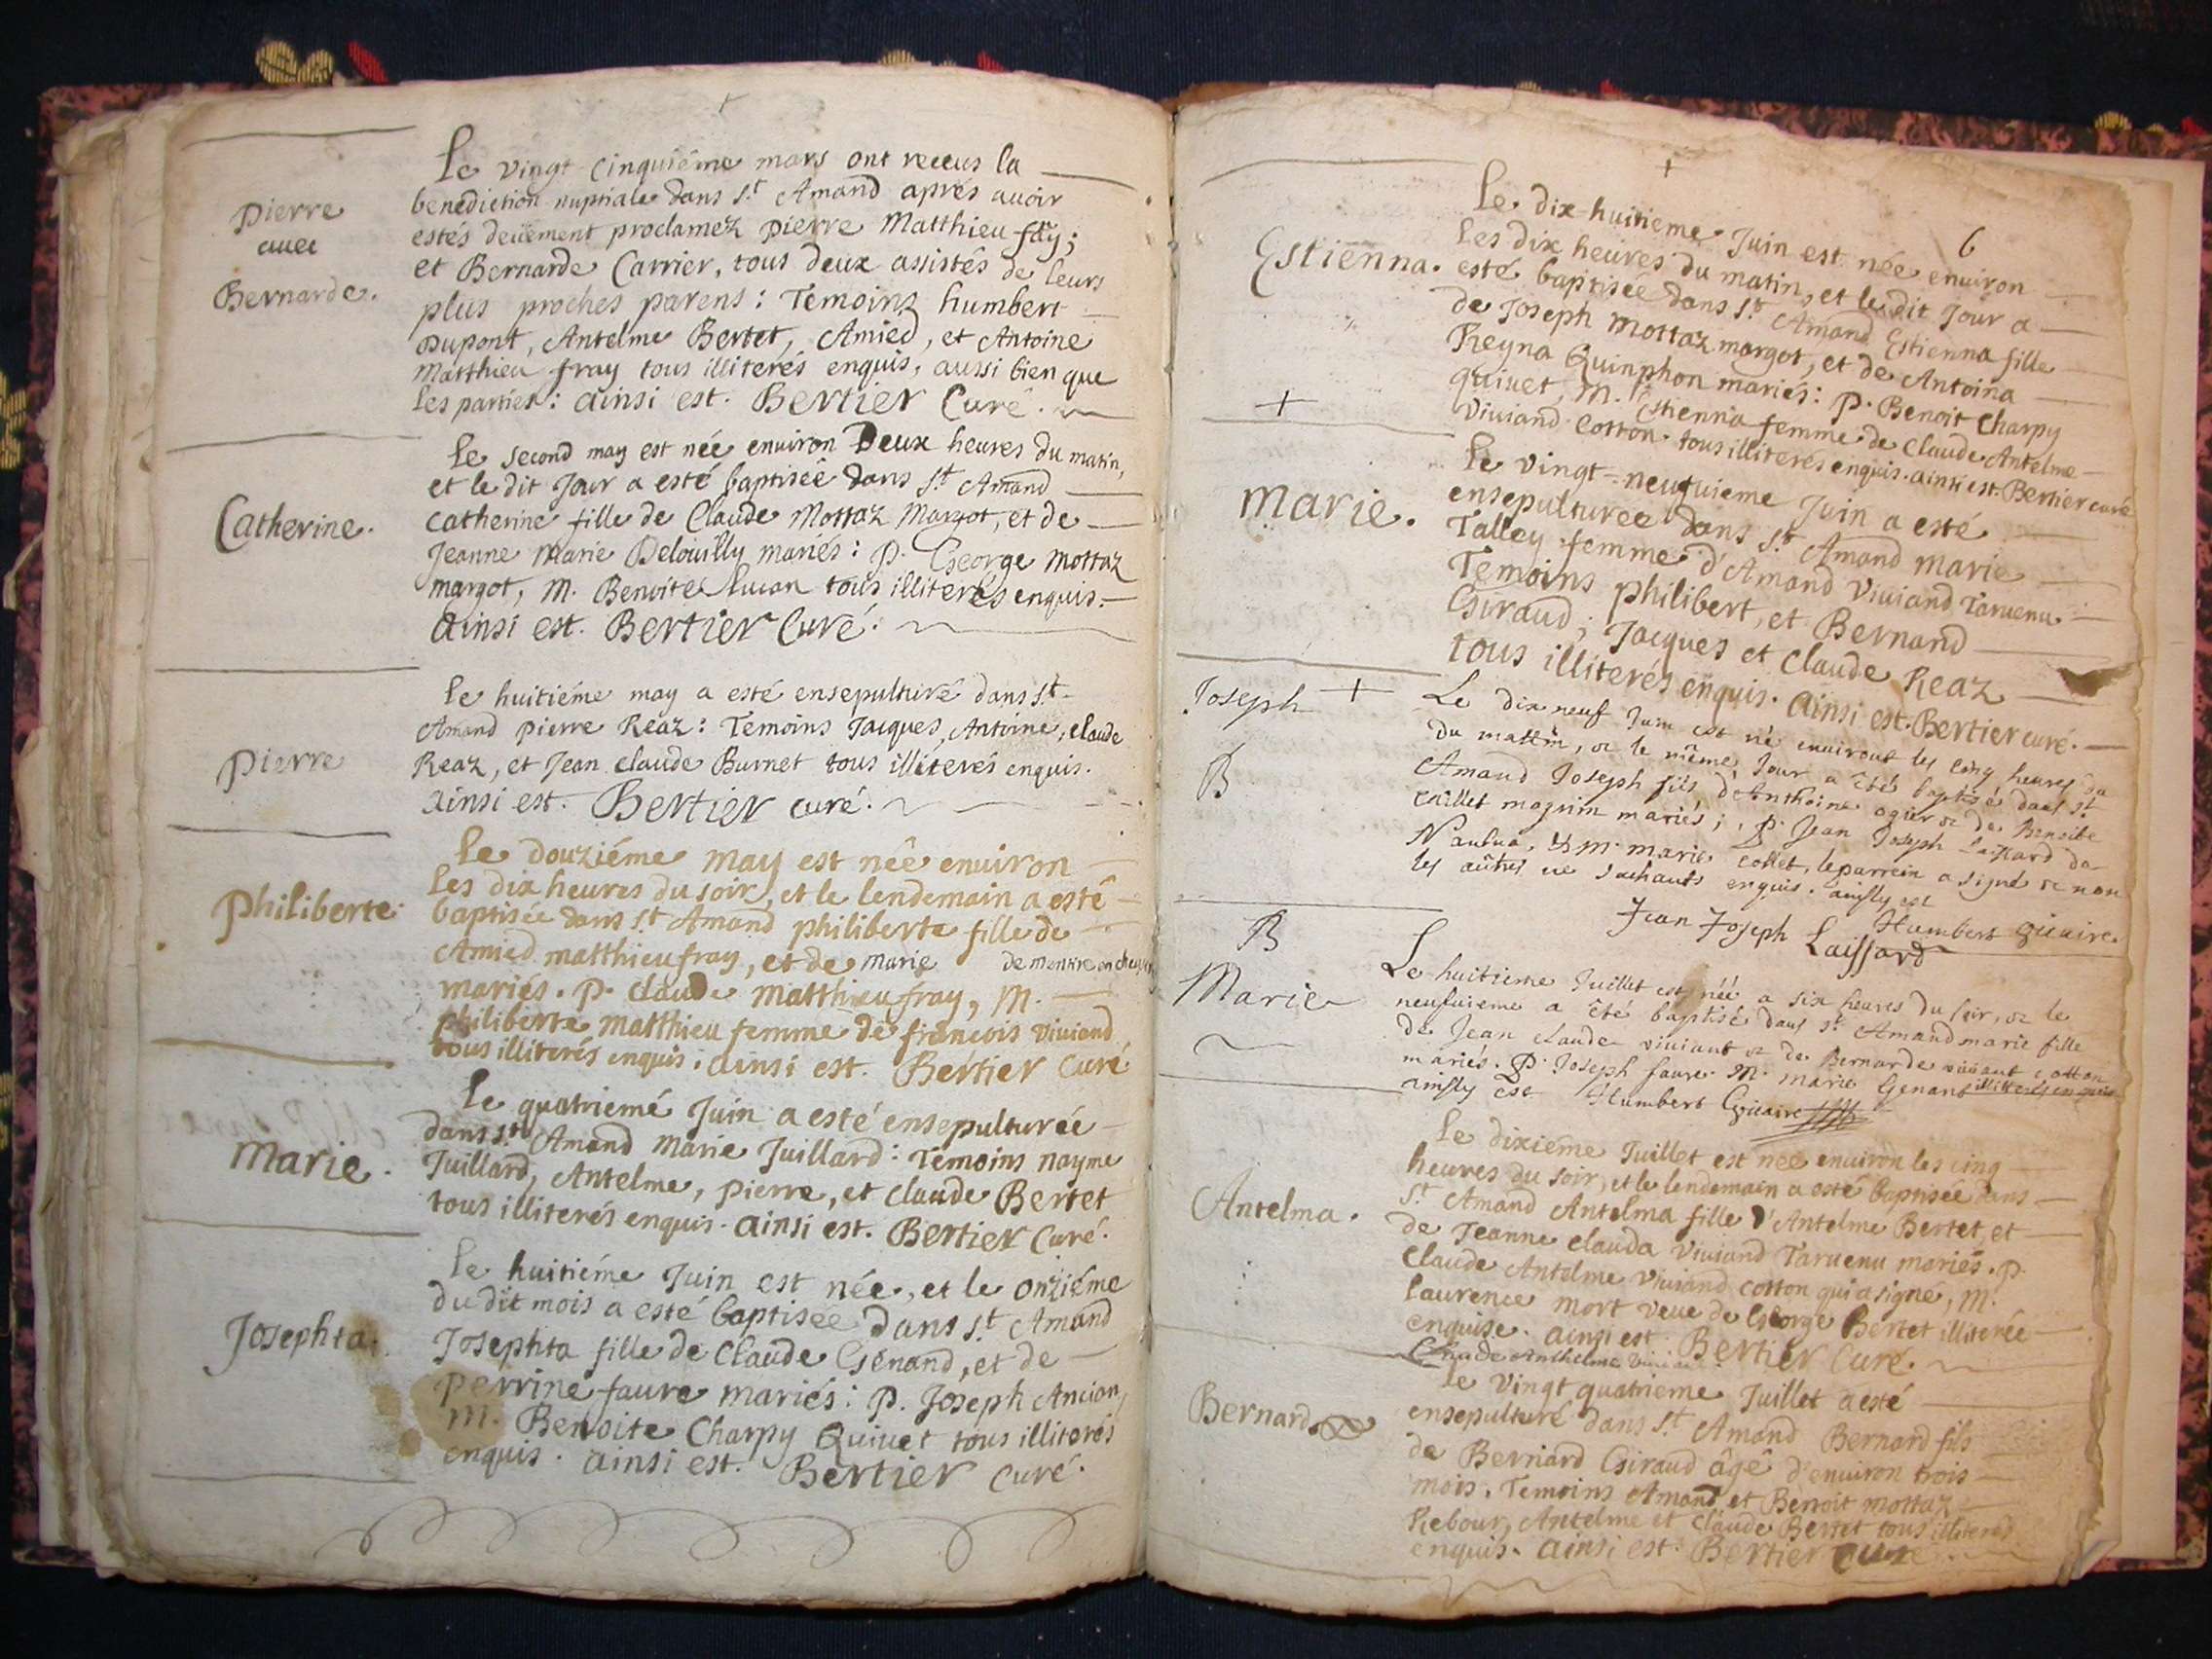 Pierre
avec
Bernarde.
Le vingt-cinquiéme mars ont receus la
benediction nuptiale dans S.t Amand aprés auoir
estés deüement proclamez pierre Matthieu fray;
et Bernarde Carrier, tous deux assistés de leurs
plus proches parens: Temoins humbert
Dupont, Antelme Bertet, Amied, et Antoine
Matthieu fray tous illiterés enquis, aussi bien que
les parties: ainsi est. Bertier Curé.
Catherine.
Le second may est née enuiron Deux heures du matin,
et le dit Jour a esté baptisée dans S.t Amand
catherine fille de Claude Mottaz Margot, et de
Jeanne Marie mariés: P. George Mottaz
margot, M. Benoite tous illiterés enquis.
ainsi est. Bertier Curé.
Pierre
Le huitiéme may a esté ensepulturé dans S.t
Amand pierre Reaz: Temoins Jacques, Antoine, claude
Reaz, et Jean claude Burnet tous illiterés enquis.
ainsi est. Bertier curé.
Philiberte.
Le douziéme may est née enuiron
les dix heures du soir, et le lendemain a esté
baptisée dans S.t Amand philiberte fille de
Amied matthieu fray, et de marie
mariés. P. claude Matthieu fray, M.
philiberte Matthieu femme de francois viuiand
tous illiterés enquis. ainsi est. Bertier Curé
Marie.
Le quatriemé Juin a esté ensepulturée
dans S.t Amand Marie Juillard: Temoins nayme
Juillard, Antelme, pierre, et claude Bertet
tous illiterés enquis. ainsi est. Bertier Curé.
Josephta.
Le huitiéme Juin est née, et le onziéme
du dit mois a esté baptisée dans S.t Amand
Josephta fille de Claude Genand, et de
perrine faure mariés: P. Joseph Ancian,
M. Benoite Charpy Quiuet tous illiterés
enquis. ainsi est. Bertier curé.
6
Estienna.
Le dix-huitieme Juin est née enuiron
les dix heures du matin, et le dit Jour a
esté baptisée dans S.t Amand Estienna fille
de Joseph Mottaz margot, et de Antoina
Reyna Quinphon mariés: P. Benoit Charpy
quiuet, M. Estienna femme de Claude Antelme
viuiand Cotton. tous illiterés enquis. ainsi est. Bertier curé
Marie.
Le vingt-neufuieme Juin a esté
ensepulturée dans S.t Amand Marie
Talley femme d'Amand Viuiand Taruenu
Temoins philibert, et Bernard
Giraud; Jacques et claude Reaz
tous illiterés enquis. Ainsi est. Bertier curé.
Joseph
B
Le dix neuf Juin est né enuiront les cinq heures
du mattin, & le même Jour a été baptisé dans st
Amand Joseph fils d'Anthoine ogier & de Benoite
caillet magnin mariés; P. Jean Joseph Laissard de
Nantua, & M. marie collet, le parrein a signé & non
les autres ne sachants enquis. ainsly est
Humbert vicaire.
Jean Joseph Laissard
B
Marie
Le huitieme Juillet est née a six heures du soir, & le
neufuieme a été baptisé dans st Amand marie fille
de Jean claude viuiant & de Bernarde viuiant cotton
mariés. P. Joseph faure M. marie Genant illiterés enquis
ainsly est Humbert vicaire
Antelma.
Le dixiéme Juillet est née enuiron les cinq
heures du soir, et le lendemain a esté baptisée dans
S.t Amand Antelma fille d'Antelme Bertet, et
de Jeanne clauda Viuiand Taruenu mariés. P.
Claude Antelme Viuiand cotton qui a signé, M.
Laurence mort veue de George Bertet illiterée
enquise. ainsi est. Bertier Curé.
Claude Anthelme
Bernard.
Le vingt quatrieme Juillet a esté
ensepulturé dans S.t Amand Bernard fils
de Bernard Giraud âgé d'enuiron trois
mois. Temoins Amand et Benoit mottaz
Rebour, Antelme et claude Bertet tous illiterés
enquis. ainsi est. Bertier curé.